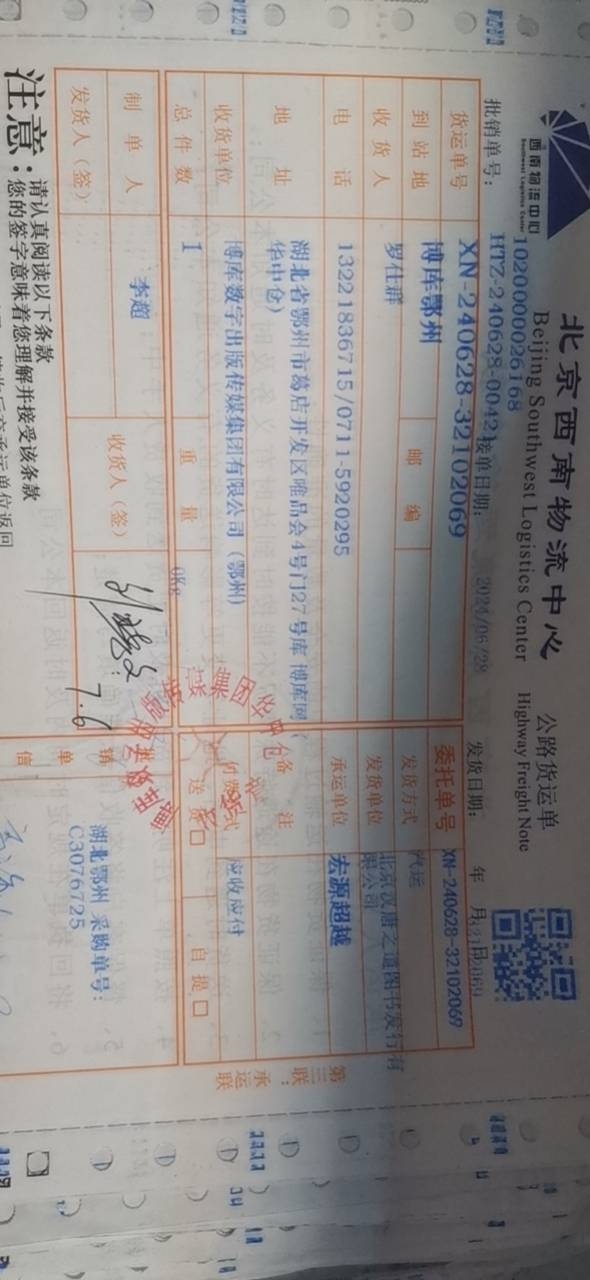 北京西南物流中心 公路货运单
Beijing Southwest Logistics Center Highway Freight Note
西南物流中心
Southwest Logistics Center
10200000026168
批销单号： HTZ-240628-0042 接单日期： 2024/06/28 发货日期： 年 月 日
货运单号 XN-240628-32102069 委托单号 XN-240628-32102069
到站地 博库鄂州 邮编 发货方式 汽运
收货人 罗仕群 发货单位 北京汉唐之道图书发行有
限公司
电话 13221836715/0711-5920295 承运单位 宏源超越
地址 湖北省鄂州市葛店开发区唯品会4号门27号库 博库网
华中仓) 备注
收货单位 博库数字出版传媒集团有限公司（鄂州) 付费方式 应收应付
总件数 1 重量 0Kg 送货□ 自提□
制单人 李超 收货人（签） 7.6
湖北鄂州 采购单号：
C3076725
发货人（签）
销
单
信
第三联：承运联
注意：
请认真阅读以下条款
您的签字意味着您理解并接受该条款